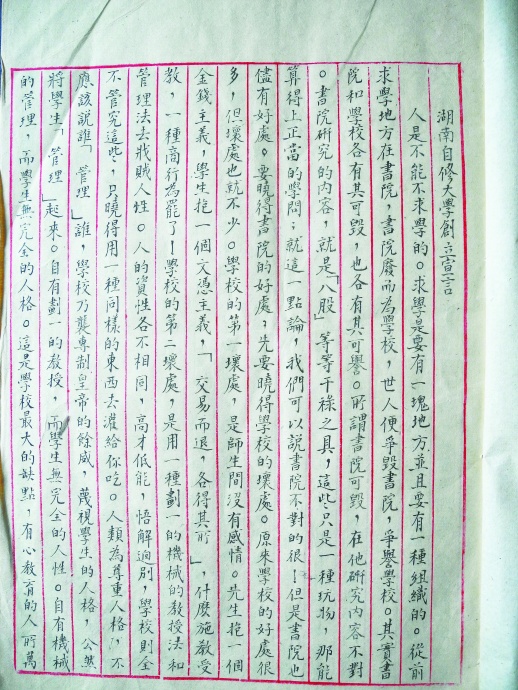 湖南自修大學創立宣言
人是不能不求學的。求學是要有一塊地方並且要有一種組織的。從前
求學地方在書院，書院廢而為學校，世人便爭毀書院，爭譽學校。其實書
院和學校各有其可毀，也各有其可譽。所謂書院可毀，在他研究內容不對
。書院研究的內容，就是「八股」等等干祿之具，這些只是一種玩物，那能
算得上正當的學問；就這一點論，我們可以說書院不對的很！但是書院也
儘有好處。要曉得書院的好處，先要曉得學校的壞處。原來學校的好處很
多，但壞處也就不少。學校的第一壞處，是師生間沒有感情。先生抱一個
金錢主義，學生抱一個文憑主義，「交易而退，各得其所」，什麼施教受
教，一種商行為罷了！學校的第二壞處，是用一種劃一的機械的教授法和
管理法去戕賊人性。人的資性各不相同，高才低能，悟解迥別，學校則全
不管究這些，只曉得用一種同樣的東西去灌給你吃。人類為尊重人格，不
應該說誰「管理」誰，學校乃襲專制皇帝的餘威，蔑視學生的人格，公然
將學生「管理」起來。自有劃一的教授，而學生無完全的人性。自有機械
的管理，而學生無完全的人格。這是學校最大的缺點，有心教育的人所萬